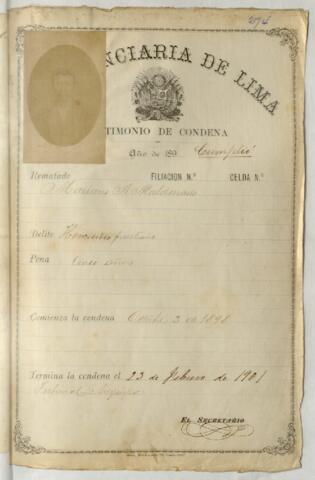 274
NCIARIA DE LIMA
TIMONIO DE CONDENA
Año de 189 Cumplió
Rematado FILIACION N.º CELDA N.º
Mariano A. Maldonado
Delito Homicidio frustrado
Pena Cinco años
Comienza la condena 3 de 1898
Termina la condena el 23 de Febrero de 1901
Tribunal
EL SECRETARIO